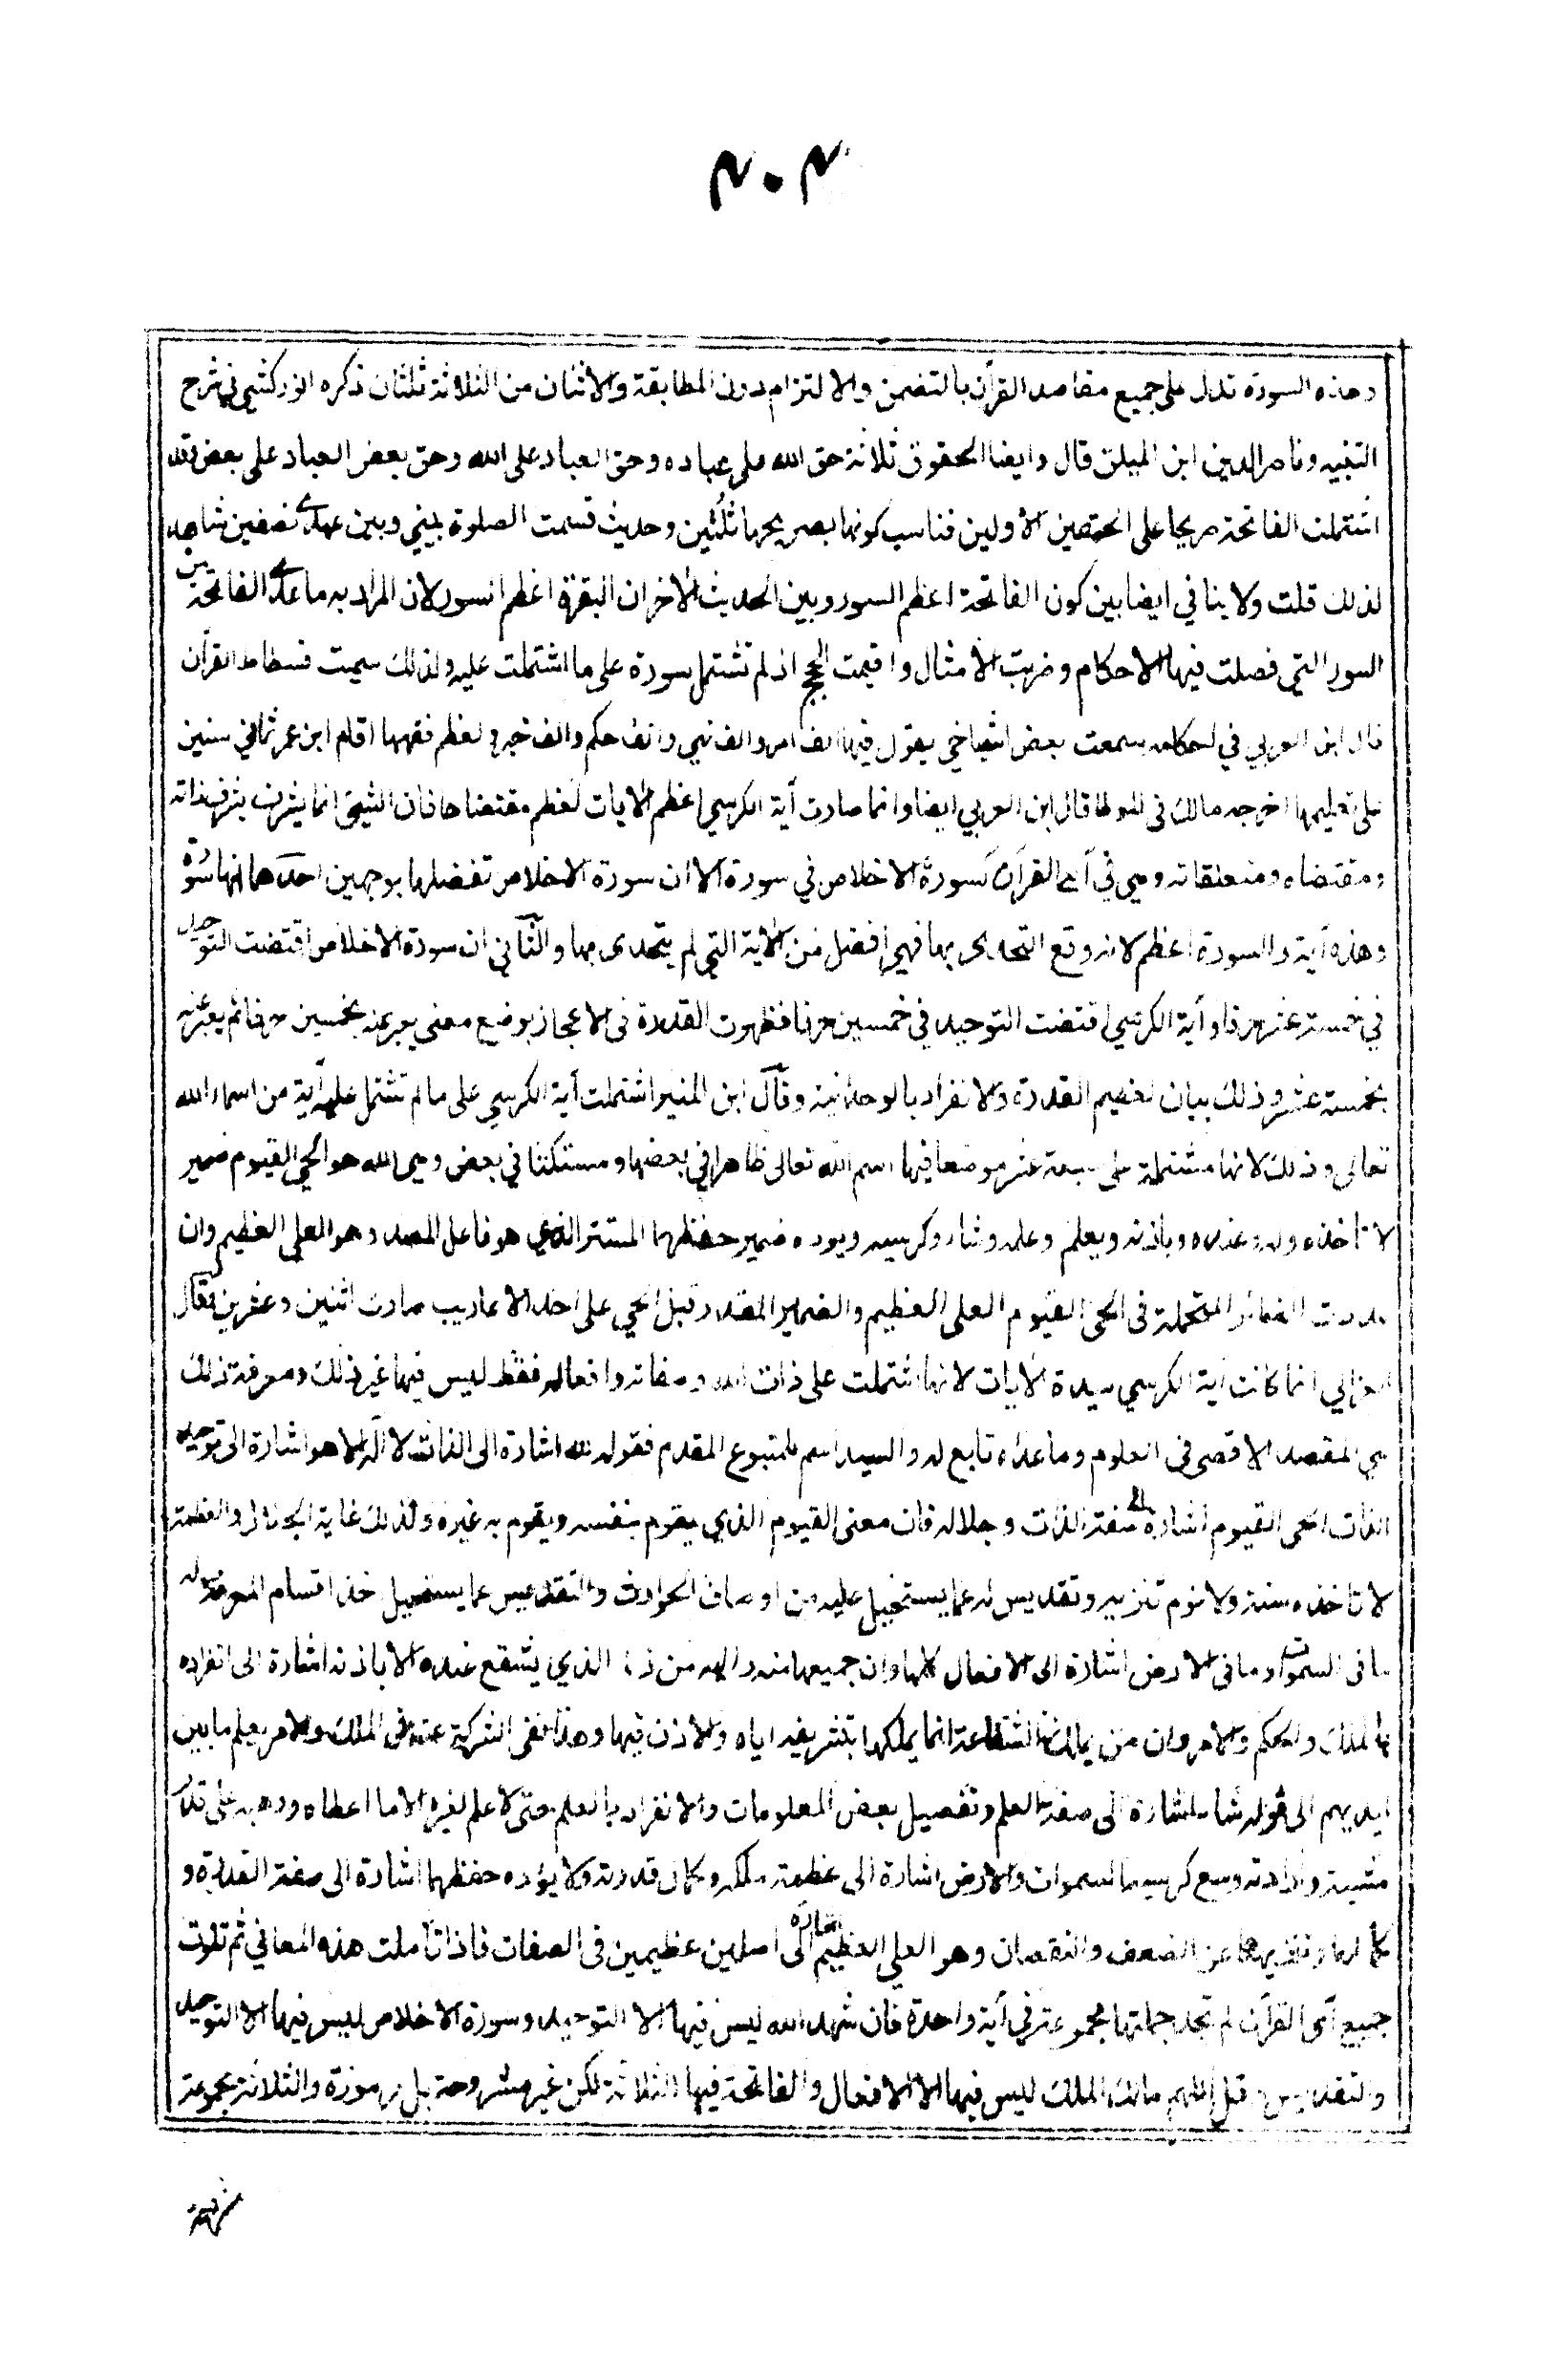 ٣٠٣
وهذه السورة تدل على جميع مقاصد القرآن بالتضمن والالتزام دون المطابقة والاثنان من الثلاثة ثلثان ذكره الزركشي في شرح
التنبيه وناصر الدين ابن الميلق قال وايضا الحقوق ثلاثة حق الله على عباده وحق العباد على الله وحق بعض العباد على بعض وقد
اشتملت الفاتحة صريحا على الحقين الاولين فناسب كونها بصريحها ثلثين وحديث قسمت الصلوة بيني وبين عبدي نصفين شاهد
لذلك قلت ولا ينافي ايضا بين كون الفاتحة اعظم السور وبين الحديث الاخر ان البقرة اعظم السور لان المراد به ما عدا الفاتحة من
السور التي فصلت فيها الاحكام وضربت الامثال واقيمت الحجج اذ لم تشتمل سورة على ما اشتملت عليه ولذلك سميت فسطاط القرآن
قال ابن العربي في احكامه سمعت بعض اشياخي يقول فيها الف امر والف نهي والف حكم والف خبر ولعظم فقهها اقام ابن عمر ثماني سنين
على تعليمها اخرجه مالك في الموطا قال ابن العربي ايضا وانما صارت آية الكرسي اعظم الايات لعظم مقتضاها فان الشيئ انما يشرف بشرف ذاته
ومقتضاه ومتعلقاته وهي في آي القرآن كسورة الاخلاص في سورة الا ان سورة الاخلاص تفضلها بوجهين احدها انها سورة
وهذه آية والسورة اعظم لانه وقع التحدى بها فهي افضل من الاية التي لم يتحدى بها والثاني ان سورة الاخلاص اقتضت التوحيد
في خمسة عشر حرفا وآية الكرسي اقتضت التوحيد في خمسين حرفا فظهرت القدرة في الاعجاز بوضع معنى يعبر عنه بخمسين حرفا ثم يعبر عنه
بخمسة عشر وذلك بيان لعظيم القدرة والانفراد بالوحدانية وقال ابن المنير اشتملت آية الكرسي على ما لم تشتمل عليه آية من اسماء الله
تعالى وذلك لانها مشتملة على سبعة عشر موضعا فيها اسم الله تعالى ظاهرا في بعضها ومستكنا في بعض وهي الله هو الحي القيوم ضمير
لا تاخذه وله وعنده وباذنه ويعلم وعلمه وشاء وكرسيه ويوده ضمير حفظهما المستتر الذي هو فاعل المصدر وهو العلي العظيم وان
عددت الضمائر المتحملة في الحي القيوم العلي العظيم والضمير المقدر قبل الحي على احد الاعاريب صارت اثنين وعشرين وقال
الغزالي انما كانت آية الكرسي سيدة الايات لانها اشتملت على ذات الله وصفاته وافعاله فقط ليس فيها غير ذلك ومعرفة ذلك
هي المقصد الاقصى في العلوم وما عداه تابع له والسيد اسم للمتبوع المقدم فقوله الله اشارة الى الذات لا اله الا هو اشارة الى توحيد
الذات الحي القيوم اشارة الى صفة الذات وجلاله فان معنى القيوم الذي يقوم بنفسه ويقوم به غيره ولذلك غاية الجلال والعظمة
لا تاخذه سنة ولا نوم تنزيه وتقديس له عما يستحيل عليه من اوصاف الحوادث والتقديس عما يستحيل احد اقسام المعرفة له
ما في السموات وما في الارض اشارة الى الافعال كلها وان جميعها منه واليه من ذا الذي يشفع عنده الا باذنه اشارة الى انفراده
بالملك والحكم والامر وان من يملك الشفاعة انما يملكها بتشريفه اياه والاذن فيها وهذا نفي الشركة عنه في الملك والامر يعلم ما بين
ايديهم الى قوله شاء اشارة الى صفة العلم وتفصيل بعض المعلومات والانفراد بالعلم حتى لا علم لغيره الا ما اعطاه ووهبه على قدر
مشيته وارادته وسع كرسيه السموات والارض اشارة الى عظمة ملكه وكمال قدرته ولا يؤده حفظهما اشارة الى صفة القدرة و
كمالها وتنزيهها عن الضعف والنقصان وهو العلي العظيم اشارة الى اصلين عظيمين في الصفات فاذا تاملت هذه المعاني ثم تلوت
جميع آي القرآن لم تجد جملتها مجموعة في آية واحدة فان شهد الله ليس فيها الا التوحيد وسورة الاخلاص ليس فيها الا التوحيد
والتقديس وقل اللهم مالك الملك ليس فيها الا الافعال والفاتحة فيها الثلاثة لكن غير مشروحة بل مرموزة والثلاثة مجموعة